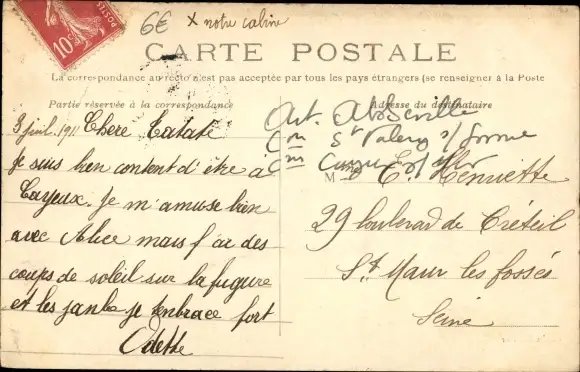 6€ x notre cabine
POSTES
10c
CARTE POSTALE
La correspondance au recto n'est pas acceptée par tous les pays étrangers (se renseigner à la Poste
Partie réservée à la correspondance
3 juil. 1911 Chere Tatate
je suis bien content d'être à
Cayeux. Je m'amuse bien
avec Alice mais j'ai des
coups de soleil sur la fugure
et les janbe je tenbrace fort
Odette
Adresse du destinataire
Art. Abbeville
Con St Valery s/ Somme
Cne Cayeux s/ Mer
M E. Henriette
29 boulevard de Créteil
St Maur les fossés
Seine